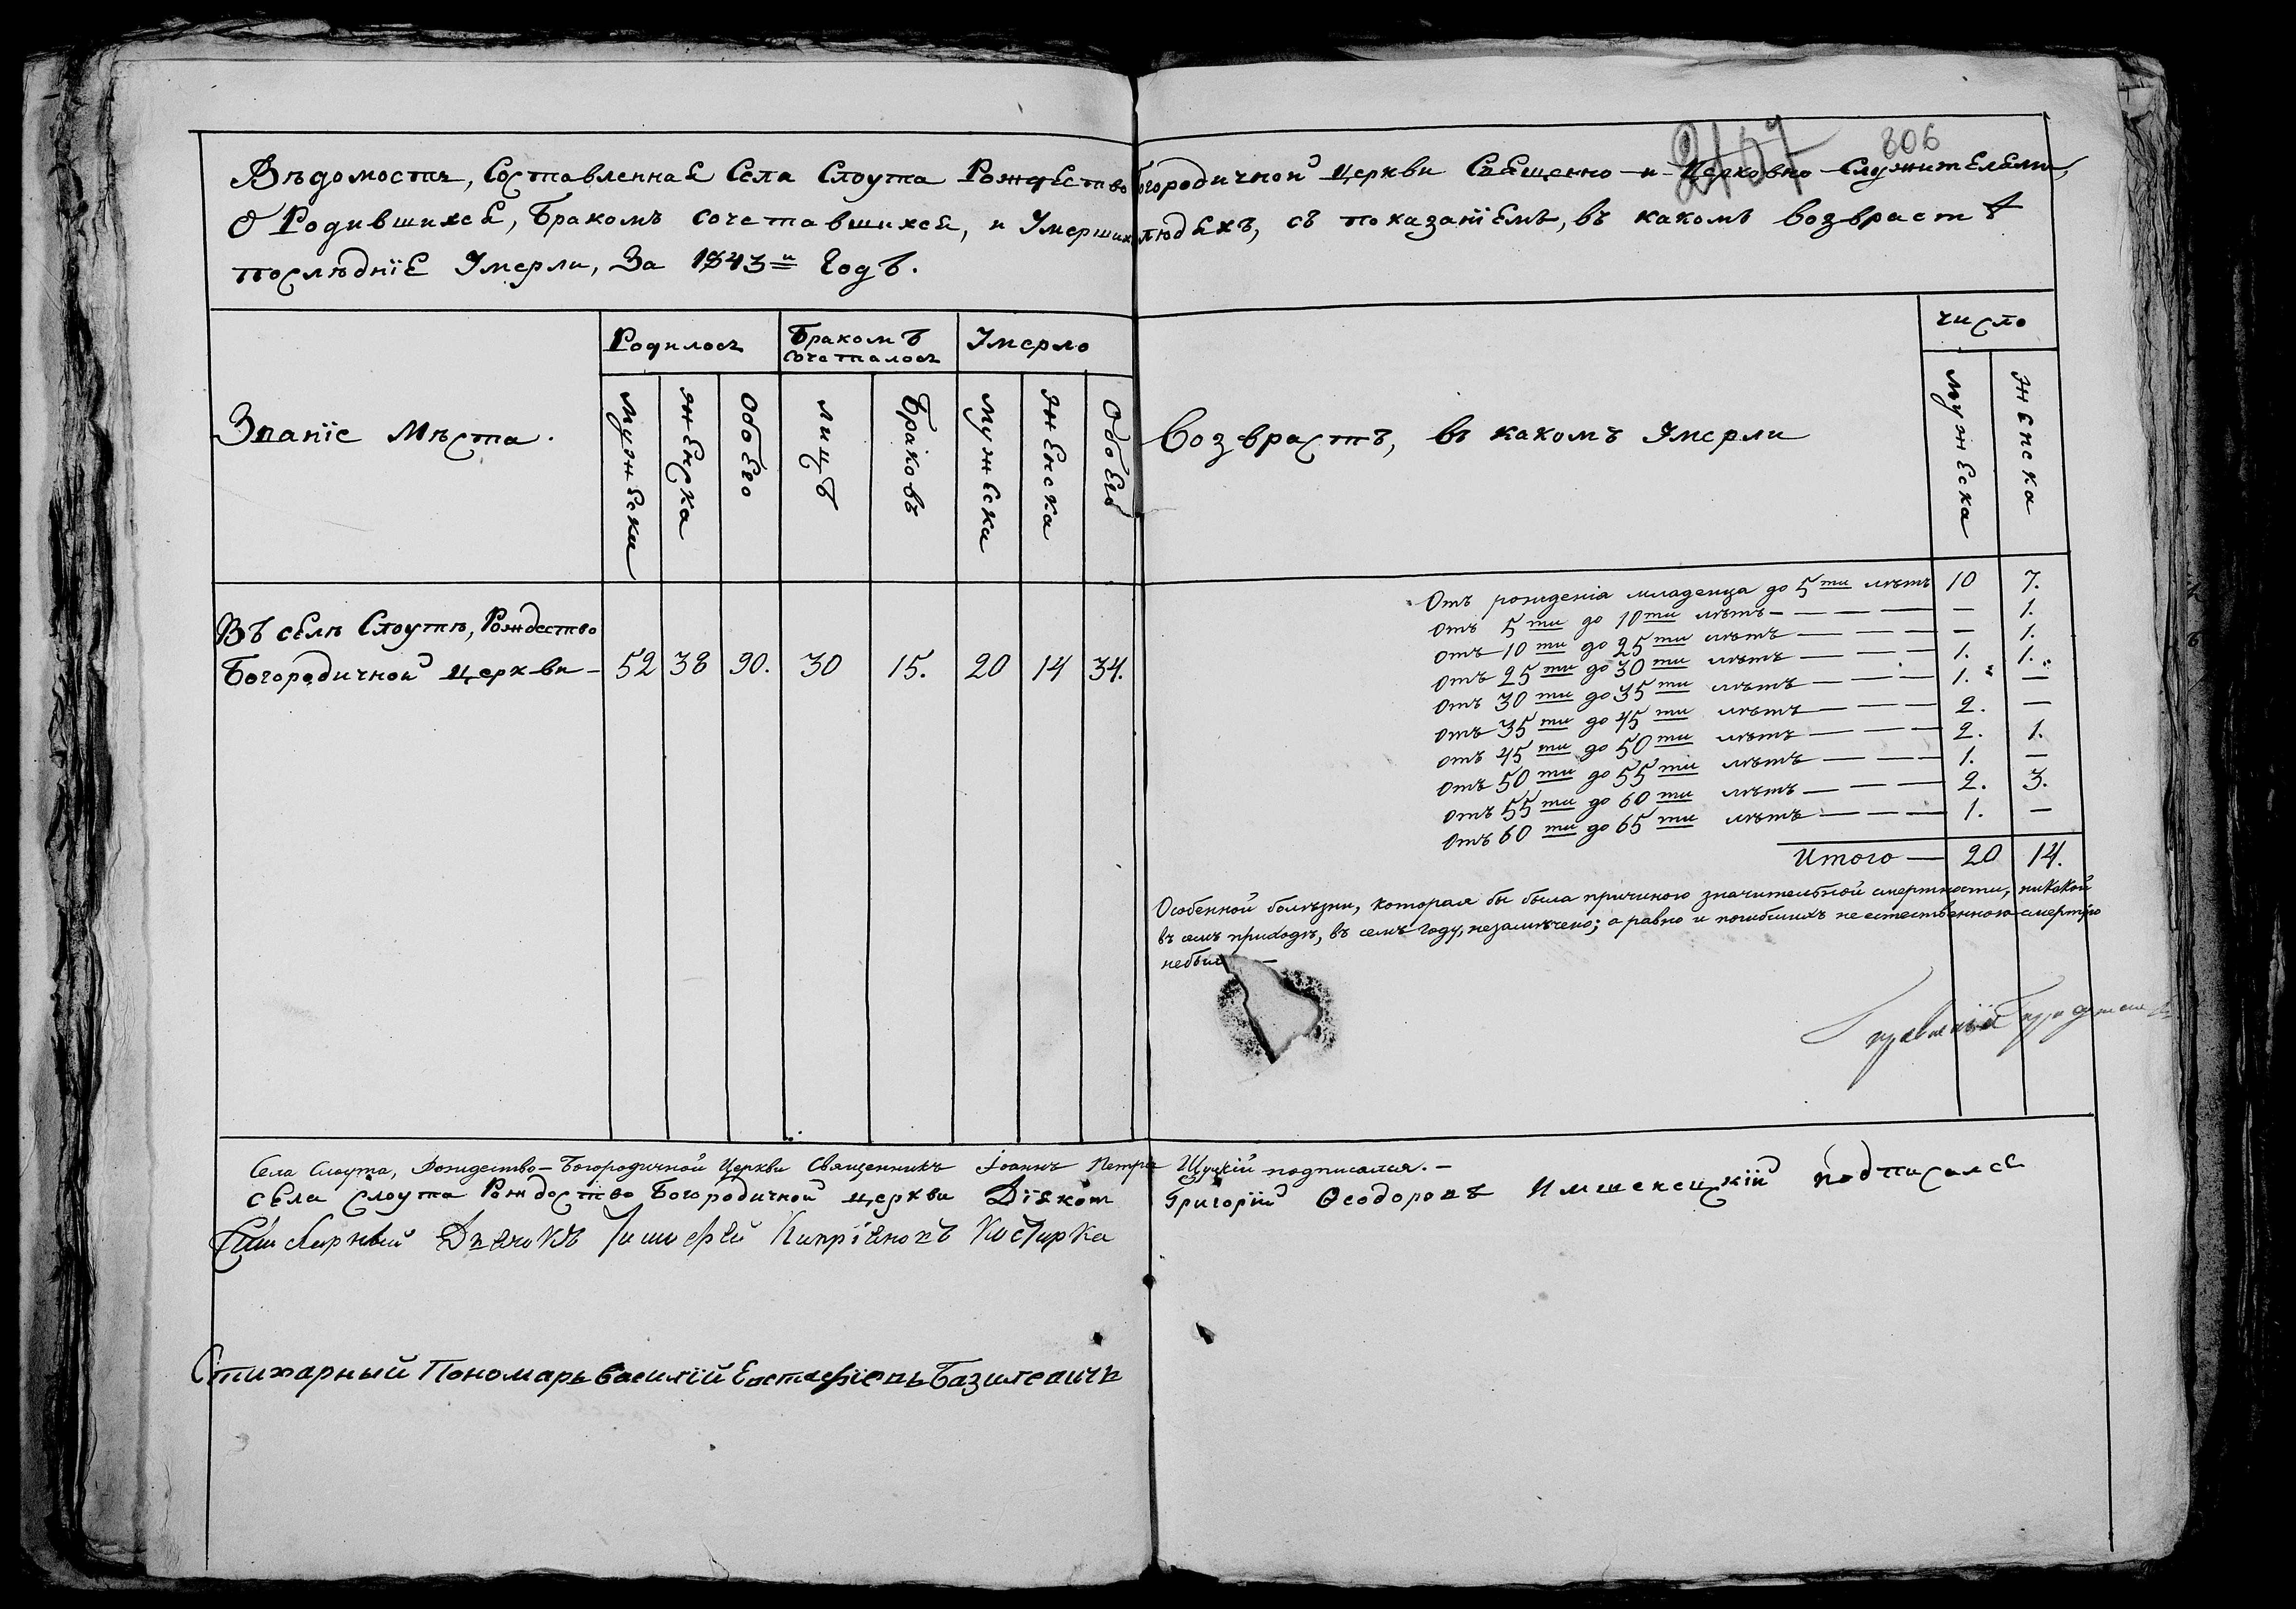 2407 806
Вѣдомость, Составленная Села Слоута Рождество Богородичной Церкви Священно-и-Церковно-Служителями,
О Родившихся, Бракомъ сочетавшихся, и Умершихъ людяхъ, съ показаніемъ, въ какомъ возврастѣ
послѣдніе Умерли, За 1843й Годъ.
Званіе Мѣста.
Родилось
Бракомъ сочеталось
Умерло
Возврастъ, въ какомъ Умерли
число
мужеска
женска
Обоего
лицъ
Браковъ
мужеска
женска
Обоего
мужеска
женска
Въ селѣ Слоутѣ, Рождество
Богородичной церкви – 52 38 90. 30 15. 20 14 34.
Отъ рожденія младенца до 5ти лѣтъ 10 7.
Отъ 5ти до 10ти лѣтъ — — — — — 1.
Отъ 10ти до 25ти лѣтъ — — — — — 1.
Отъ 25ти до 30ти лѣтъ — — — — 1. 1.
Отъ 30ти до 35ти лѣтъ — — — 1. —
Отъ 35ти до 45ти лѣтъ — — — 2. —
Отъ 45ти до 50ти лѣтъ — — — 2. 1.
Отъ 50ти до 55ти лѣтъ — — — 1. —
Отъ 55ти до 60ти лѣтъ — — — 2. 3.
Отъ 60ти до 65ти лѣтъ — — — 1. —
Итого — 20 14.
Особенной болѣзни, которая бы была причиною значительной смертности, никакой
въ семъ приходѣ, въ семъ году, незамѣчено; а равно и погибшихъ неестественною смертію
небыло —
Села Слоута, Рождество-Богородичной Церкви Священникъ Іоаннъ Петровъ Щуцкій подписался. –
села Слоута Рождество Богородичной церкви Діяконъ Григорій Ѳеодоровъ Имшенецкій подписался
Стихарный Дьячокъ Тимофей Кипріяновъ Костирка
Стихарный Пономарь Василій Евстафіевъ Базилевичъ